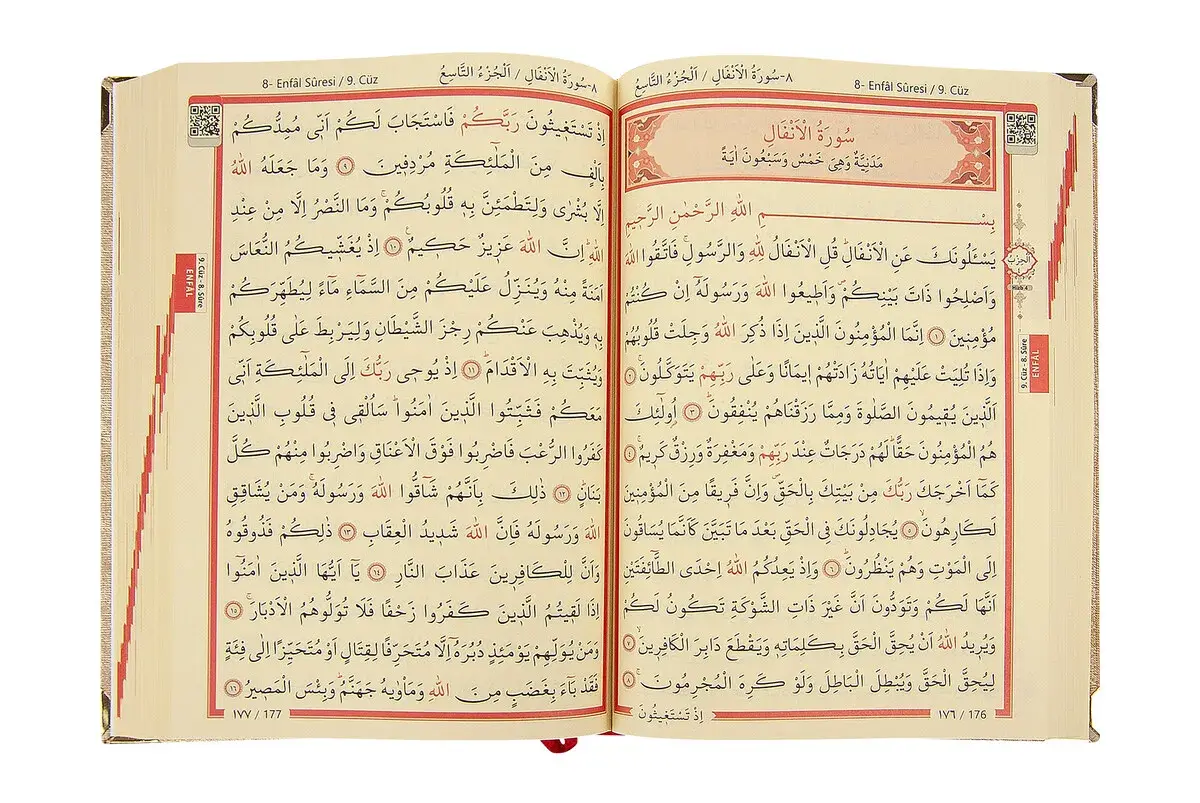 ٨-سُورَةُ الْاَنْفَالِ / اَلْجُزْءُ التَّاسِعُ
8- Enfâl Sûresi / 9. Cüz
سُورَةُ الْاَنْفَالِ
مَدَنِيَّةٌ وَهِىَ خَمْسٌ وَسَبْعُونَ اٰيَةً
بِسْمِ اللّٰهِ الرَّحْمٰنِ الرَّحٖيمِ
يَسْـَٔلُونَكَ عَنِ الْاَنْفَالِؕ قُلِ الْاَنْفَالُ لِلّٰهِ وَالرَّسُولِۚ فَاتَّقُوا اللّٰهَ
وَاَصْلِحُوا ذَاتَ بَيْنِكُمْࣕ وَاَطٖيعُوا اللّٰهَ وَرَسُولَهُٓ اِنْ كُنْتُمْ
مُؤْمِنٖينَ ﴿١﴾ اِنَّمَا الْمُؤْمِنُونَ الَّذٖينَ اِذَا ذُكِرَ اللّٰهُ وَجِلَتْ قُلُوبُهُمْ
وَاِذَا تُلِيَتْ عَلَيْهِمْ اٰيَاتُهُ زَادَتْهُمْ اٖيمَانًا وَعَلٰى رَبِّهِمْ يَتَوَكَّلُونَۚ ﴿٢﴾
اَلَّذٖينَ يُقٖيمُونَ الصَّلٰوةَ وَمِمَّا رَزَقْنَاهُمْ يُنْفِقُونَؕ ﴿٣﴾ اُو۬لٰٓئِكَ
هُمُ الْمُؤْمِنُونَ حَقًّاؕ لَهُمْ دَرَجَاتٌ عِنْدَ رَبِّهِمْ وَمَغْفِرَةٌ وَرِزْقٌ كَرٖيمٌۚ ﴿٤﴾
كَمَٓا اَخْرَجَكَ رَبُّكَ مِنْ بَيْتِكَ بِالْحَقِّࣕ وَاِنَّ فَرٖيقًا مِنَ الْمُؤْمِنٖينَ
لَكَارِهُونَۙ ﴿٥﴾ يُجَادِلُونَكَ فِى الْحَقِّ بَعْدَ مَا تَبَيَّنَ كَاَنَّمَا يُسَاقُونَ
اِلَى الْمَوْتِ وَهُمْ يَنْظُرُونَؕ ﴿٦﴾ وَاِذْ يَعِدُكُمُ اللّٰهُ اِحْدَى الطَّٓائِفَتَيْنِ
اَنَّهَا لَكُمْ وَتَوَدُّونَ اَنَّ غَيْرَ ذَاتِ الشَّوْكَةِ تَكُونُ لَكُمْ
وَيُرٖيدُ اللّٰهُ اَنْ يُحِقَّ الْحَقَّ بِكَلِمَاتِهٖ وَيَقْطَعَ دَابِرَ الْكَافِرٖينَۙ ﴿٧﴾
لِيُحِقَّ الْحَقَّ وَيُبْطِلَ الْبَاطِلَ وَلَوْ كَرِهَ الْمُجْرِمُونَۚ ﴿٨﴾
١٧٦ / 176
اِذْ تَسْتَغٖيثُونَ
اَلْحِزْبُ
Hizb 4
9. Cüz - 8. Sûre
ENFÂL
٨-سُورَةُ الْاَنْفَالِ / اَلْجُزْءُ التَّاسِعُ
8- Enfâl Sûresi / 9. Cüz
اِذْ تَسْتَغٖيثُونَ رَبَّكُمْ فَاسْتَجَابَ لَكُمْ اَنّٖى مُمِدُّكُمْ
بِاَلْفٍ مِنَ الْمَلٰٓئِكَةِ مُرْدِفٖينَ ﴿٩﴾ وَمَا جَعَلَهُ اللّٰهُ
اِلَّا بُشْرٰى وَلِتَطْمَئِنَّ بِهٖ قُلُوبُكُمْۚ وَمَا النَّصْرُ اِلَّا مِنْ عِنْدِ
اللّٰهِؕ اِنَّ اللّٰهَ عَزٖيزٌ حَكٖيمٌ۟ ﴿١٠﴾ اِذْ يُغَشّٖيكُمُ النُّعَاسَ
اَمَنَةً مِنْهُ وَيُنَزِّلُ عَلَيْكُمْ مِنَ السَّمَٓاءِ مَٓاءً لِيُطَهِّرَكُمْ
بِهٖ وَيُذْهِبَ عَنْكُمْ رِجْزَ الشَّيْطَانِ وَلِيَرْبِطَ عَلٰى قُلُوبِكُمْ
وَيُثَبِّتَ بِهِ الْاَقْدَامَؕ ﴿١١﴾ اِذْ يُوحٖى رَبُّكَ اِلَى الْمَلٰٓئِكَةِ اَنّٖى
مَعَكُمْ فَثَبِّتُوا الَّذٖينَ اٰمَنُواؕ سَاُلْقٖى فٖى قُلُوبِ الَّذٖينَ
كَفَرُوا الرُّعْبَ فَاضْرِبُوا فَوْقَ الْاَعْنَاقِ وَاضْرِبُوا مِنْهُمْ كُلَّ
بَنَانٍؕ ﴿١٢﴾ ذٰلِكَ بِاَنَّهُمْ شَٓاقُّوا اللّٰهَ وَرَسُولَهُۚ وَمَنْ يُشَاقِقِ
اللّٰهَ وَرَسُولَهُ فَاِنَّ اللّٰهَ شَدٖيدُ الْعِقَابِ ﴿١٣﴾ ذٰلِكُمْ فَذُوقُوهُ
وَاَنَّ لِلْكَافِرٖينَ عَذَابَ النَّارِ ﴿١٤﴾ يَٓا اَيُّهَا الَّذٖينَ اٰمَنُٓوا
اِذَا لَقٖيتُمُ الَّذٖينَ كَفَرُوا زَحْفًا فَلَا تُوَلُّوهُمُ الْاَدْبَارَۚ ﴿١٥﴾
وَمَنْ يُوَلِّهِمْ يَوْمَئِذٍ دُبُرَهُٓ اِلَّا مُتَحَرِّفًا لِقِتَالٍ اَوْ مُتَحَيِّزًا اِلٰى فِئَةٍ
فَقَدْ بَٓاءَ بِغَضَبٍ مِنَ اللّٰهِ وَمَاْوٰيهُ جَهَنَّمُؕ وَبِئْسَ الْمَصٖيرُ ﴿١٦﴾
١٧٧ / 177
9. Cüz - 8. Sûre
ENFÂL